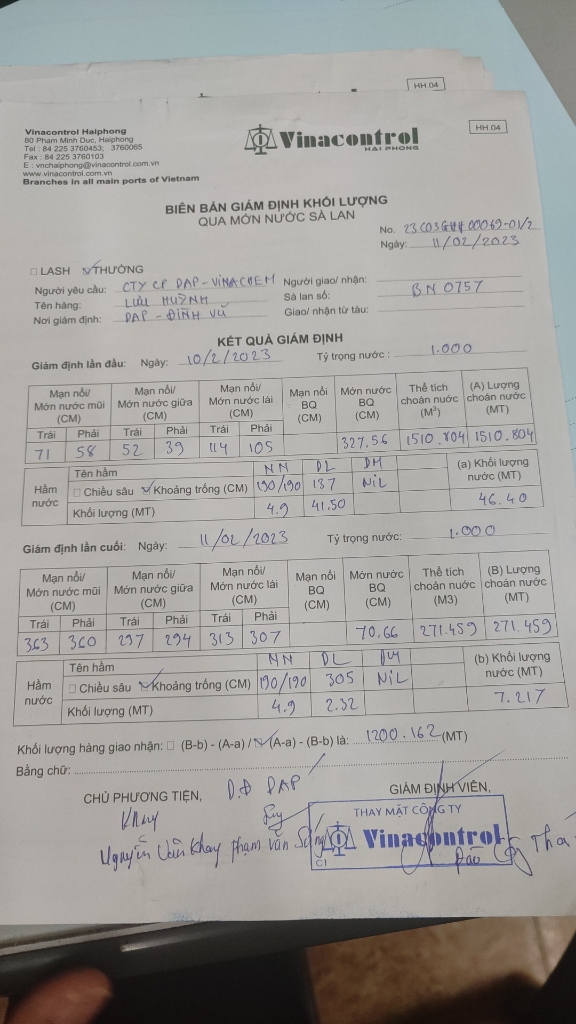 HH.04
HH.04
Vinacontrol Haiphong
80 Pham Minh Duc, Haiphong
Tel : 84 225 3760453; 3760065
Fax : 84 225 3760103
E : vnchaiphong@vinacontrol.com.vn
www.vinacontrol.com.vn
Branches in all main ports of Vietnam
Vinacontrol
HAI PHONG
BIÊN BẢN GIÁM ĐỊNH KHỐI LƯỢNG
QUA MỚN NƯỚC SÀ LAN
No. 23C03GHH00069-01/2
Ngày: 11/02/2023
LASH THƯỜNG
Người yêu cầu: CTY CP DAP-VINACHEM Người giao/ nhận:
Tên hàng: LƯU HUỲNH Sà lan số: BN 0757
Nơi giám định: DAP-ĐÌNH VŨ Giao/ nhận từ tàu:
KẾT QUẢ GIÁM ĐỊNH
Giám định lần đầu: Ngày: 10/2/2023 Tỷ trọng nước : 1.000
Mạn nổi/ Mớn nước mũi (CM) Mạn nổi/ Mớn nước giữa (CM) Mạn nổi/ Mớn nước lái (CM) Mạn nổi BQ (CM) Mớn nước BQ (CM) Thể tích choán nước (M³) (A) Lượng choán nước (MT)
Trái Phải Trái Phải Trái Phải
71 58 52 39 114 105 327.56 1510.804 1510.804
Hầm nước Tên hầm NN DL DM (a) Khối lượng nước (MT)
Chiều sâu Khoảng trống (CM) 190/190 137 NiL
Khối lượng (MT) 4.9 41.50 46.40
Giám định lần cuối: Ngày: 11/02/2023 Tỷ trọng nước: 1.000
Mạn nổi/ Mớn nước mũi (CM) Mạn nổi/ Mớn nước giữa (CM) Mạn nổi/ Mớn nước lái (CM) Mạn nổi BQ (CM) Mớn nước BQ (CM) Thể tích choán nước (M3) (B) Lượng choán nước (MT)
Trái Phải Trái Phải Trái Phải
363 360 297 294 313 307 70.66 271.459 271.459
Hầm nước Tên hầm NN DL DM (b) Khối lượng nước (MT)
Chiều sâu Khoảng trống (CM) 190/190 305 NiL
Khối lượng (MT) 4.9 2.32 7.217
Khối lượng hàng giao nhận: (B-b) - (A-a) / (A-a) - (B-b) là: 1200.162 (MT)
Bằng chữ:
CHỦ PHƯƠNG TIỆN, D.D DAP GIÁM ĐỊNH VIÊN,
THAY MẶT CÔNG TY
Vinacontrol
C1
Nguyễn Văn Khay Phạm Văn